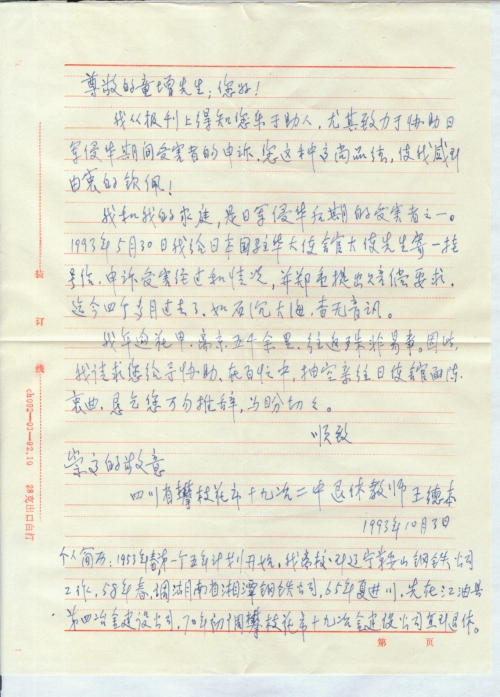 尊敬的童增先生：您好！
我从报刊上得知您乐于助人，尤其致力于协助日
军侵华期间受害者的申诉，您这种高尚品德，使我感到
由衷的钦佩！
我和我的家庭，是日军侵华初期的受害者之一。
1993年5月30日我给日本国驻华大使馆大使先生寄一挂
号信，申诉受害经过和情况，并郑重提出赔偿要求，
迄今四个多月过去了，如石沉大海，杳无音讯。
我年逾花甲，离京五千余里，往返实非易事。因此，
我请求您给予协助，在百忙中，抽空亲往日使馆面陈
衷曲，恳乞您万勿推辞，为盼切切。
顺致
崇高的敬意
四川省攀枝花市十九冶二中退休教师 王德本
1993年10月3日
个人简历：1953年春第一个五年计划开始，我离校到辽宁鞍山钢铁公司
工作，58年春，调湖南省湘潭钢铁公司，65年夏进川，先在江油县
第四冶金建设公司，70年初调攀枝花市十九冶金建设公司直到退休。
第 页
装
订
线
ck092—03—92.10
28克出口白打